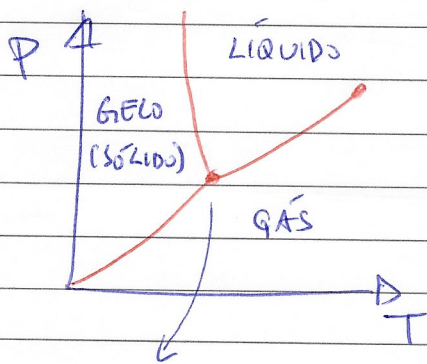 P
LÍQUIDO
GELO
(SÓLIDO)
GÁS
T